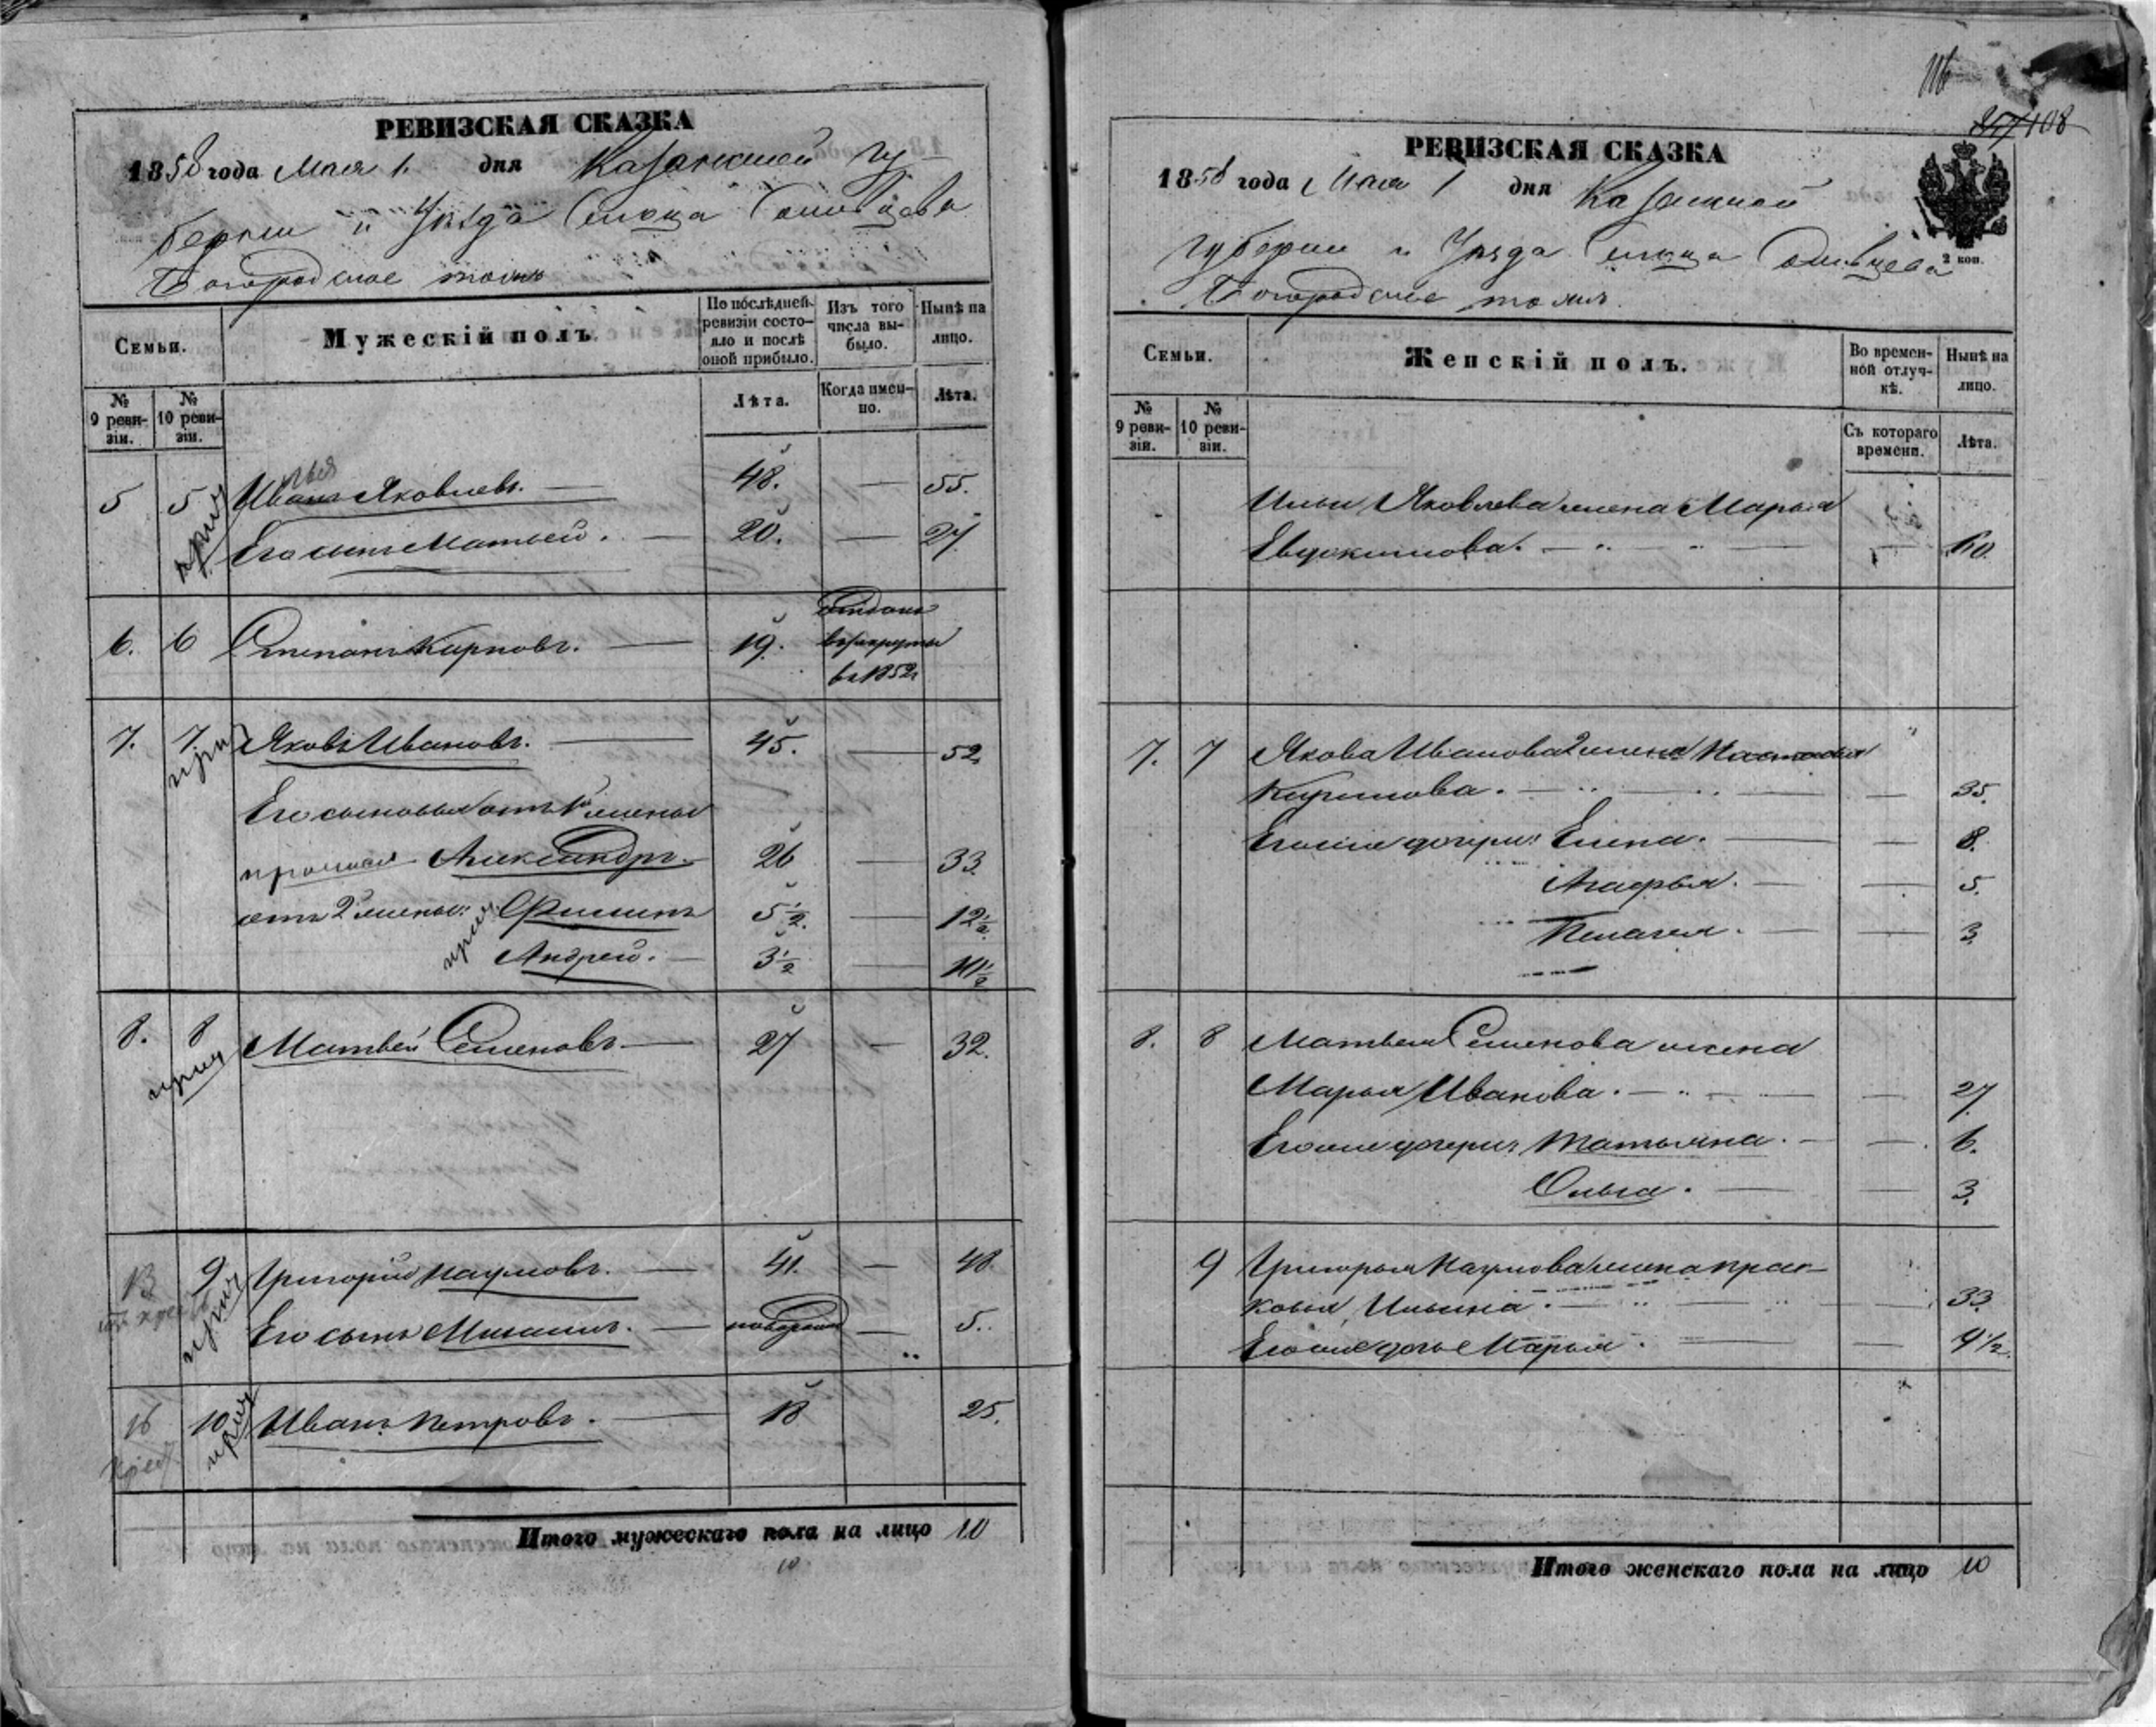 РЕВИЗСКАЯ СКАЗКА
1858 года Мая 1. дня Казанской гу-
бернии и Уезда Сельца
Богородское тожъ
Семьи.
Мужескій полъ.
По послѣдней ревизіи состояло и послѣ оной прибыло.
Изъ того числа выбыло.
Нынѣ на лицо.
№ 9 ревизіи.
№ 10 ревизіи.
Лѣта.
Когда именно.
Лѣта.
5 5 Иванъ Илья Яковлевъ. — 48. — 55.
Его сынъ Матвей. — 20. — 27.
6. 6 Степанъ Карповъ. — 19. отданъ
въ рекруты
въ 1852
7. 7. Яковъ Ивановъ. — 45. — 52.
Его сыновья отъ 1й жены
Александръ — 26 — 33.
отъ 2й жены: Филипъ 5 1/2. — 12 1/2.
Андрей. — 3 1/2 — 10 1/2
8. 8 Матвей Семеновъ — 27 — 32.
13 9 Григорий Наумовъ. — 41. — 48
Его сынъ Михаилъ. — — 5.
16 10 Иванъ Петровъ. — 18 25.
Итого мужескаго пола на лицо 10
10
116
108
РЕВИЗСКАЯ СКАЗКА
1858 года Мая 1 дня Казанской
губернии и Уезда Сельца
Богородское тожъ.
2 коп.
Семьи.
Женскій полъ.
Во временной отлучкѣ.
Нынѣ на лицо.
№ 9 ревизіи.
№ 10 ревизіи.
Съ котораго времени.
Лѣта.
Ильи Яковлева жена Марья
Евдокимова. — — 60.
7. 7 Якова Иванова 2 жена Настасья
— — 35.
Его же дочери: Елена. — — 8.
Агафья. — — 5.
Пелагея. — — 3
8. 8 Матвея Семенова жена
Марья Иванова. — — 27.
Его же дочери: Татьяна. — — 6.
Ольга. — — 3.
9 Григорья Наумова жена Прас-
ковья Ильина. — — 33
Его же дочь Марья. — — 9 1/2.
Итого женскаго пола на лицо 10